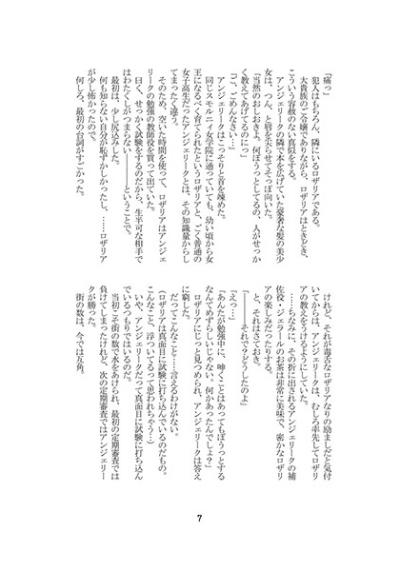 「痛っ」
　犯人はもちろん、隣にいるロザリアである。
　大貴族のご令嬢でありながら、ロザリアはときどき、
こういう容赦のない真似をする。
　アンジェリークの隣で本を広げていた豪奢な髪の美少
女は、つん、と肩を尖らせてそっぽ向いた。
「当然のおしおきよ。何ぼうっとしてるの、人がせっか
く教えてあげてるのにっ」
「ご、ごめんなさい…」
　アンジェリークはこっそりと首を竦めた。
　同じスモルニィ女学院に通っていても、幼い頃から女
王になるべく育てられたというロザリアと、ごく普通の
女子高生だったアンジェリークとは、その知識量からし
てまったく違う。
　そのため、空いた時間を使って、ロザリアはアンジェ
リークの勉強の教師役を買って出ていた。
　曰く、せっかく試験をするのだから、生半可な相手で
はわたくしがつまらない――――ということで。
　最初は、少し尻込みした。
　何も知らない自分が恥ずかしかったし、……ロザリア
が少し怖かったので。
　何しろ、最初の台詞がすごかった。
　けれど、それが毒舌なロザリアなりの励ましだと気付
いてからは、アンジェリークは、むしろ率先してロザリ
アの教えをうけるようにしていた。
　……ちなみに、その折に出されるアンジェリークの補
佐役・ジェラールのお茶は非常に美味で、密かなロザリ
アの楽しみだったりする。
　と、それはさておき。
「――――それで？どうしたのよ」
「えっ…」
「あんたが勉強中に、呻くことはあってもぼうっとする
なんてめずらしいじゃない。何かあったんでしょ？」
　ロザリアにじっと見つめられ、アンジェリークは答え
に窮した。
　だってこんなこと……言えるわけがない。
（ロザリアは真面目に試験に打ち込んでいるのだもの。
こんなこと、浮ついてるって思われちゃう…）
　いや、アンジェリークだって真面目に試験に打ち込ん
でいるつもりではいるのだが。
　当初こそ街の数で水をあけられ、最初の定期審査では
負けてしまったけれど、次の定期審査ではアンジェリー
クが勝った。
　街の数は、今では互角。
7